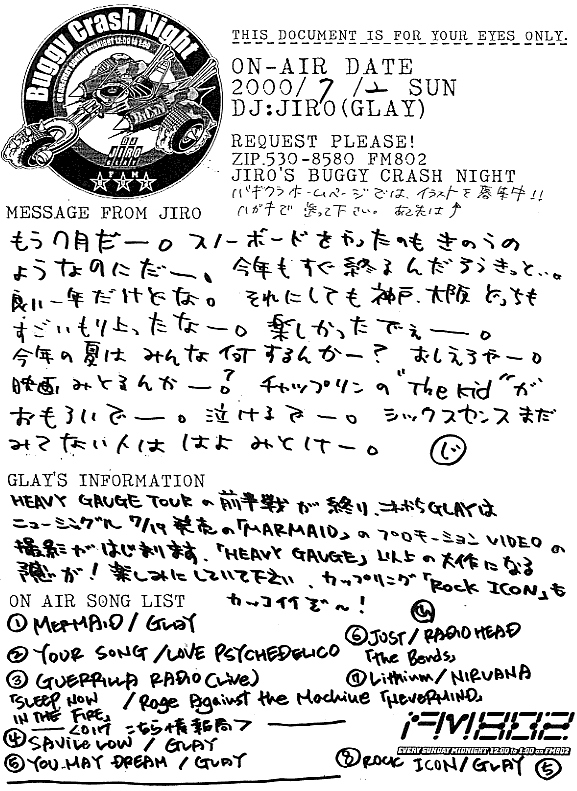 Buggy Crash Night
EVERY SUNDAY MIDNIGHT 12:00 to 1:00
DJ
JIRO
THIS DOCUMENT IS FOR YOUR EYES ONLY.
ON-AIR DATE
2000/7/2 SUN
DJ:JIRO(GLAY)
REQUEST PLEASE!
ZIP.530-8580 FM802
JIRO'S BUGGY CRASH NIGHT
バギクラホームページでは、イラストを募集中!!
ハガキで送って下さい。あて先は↑
MESSAGE FROM JIRO
もう7月だー。スノーボードをやったのもきのうの
ようなのにだー、今年もすぐ終るんだろうきっと…。
良い一年だけどな。それにしても神戸、大阪どっちも
すごいもり上ったなー。楽しかったでぇー。
今年の夏はみんな何するんかー?おしえろやー。
映画みとるんかー?チャップリンの"The Kid"が
おもろいでー。泣けるでー。シックスセンスまだ
みてない人ははよみとけー。 じ
GLAY'S INFORMATION
HEAVY GAUGE TOURの前半戦が終り、これからGLAYは
ニューシングル7/19発売の「MARMAID」のプロモーションVIDEOの
撮影がはじまります、「HEAVY GAUGE」以上の大作になる
予感が!楽しみにしていて下さい、カップリング「ROCK ICON」も
カッコイイぞ〜!
ON AIR SONG LIST
① MERMAID / GLAY
② YOUR SONG / LOVE PSYCHEDELICO
③ GUERRILLA RADIO (Live)
「SLEEP NOW IN THE FIRE」 / Rage Against the Machine
こちら情報局
④ SAVILE LOW / GLAY
⑤ YOU MAY DREAM / GLAY
⑥ JUST / RADIO HEAD
「The Bends」
⑦ Lithium / NIRVANA
「NEVERMIND」
FM802
EVERY SUNDAY MIDNIGHT 12:00 to 1:00 on FM802
⑧ ROCK ICON / GLAY